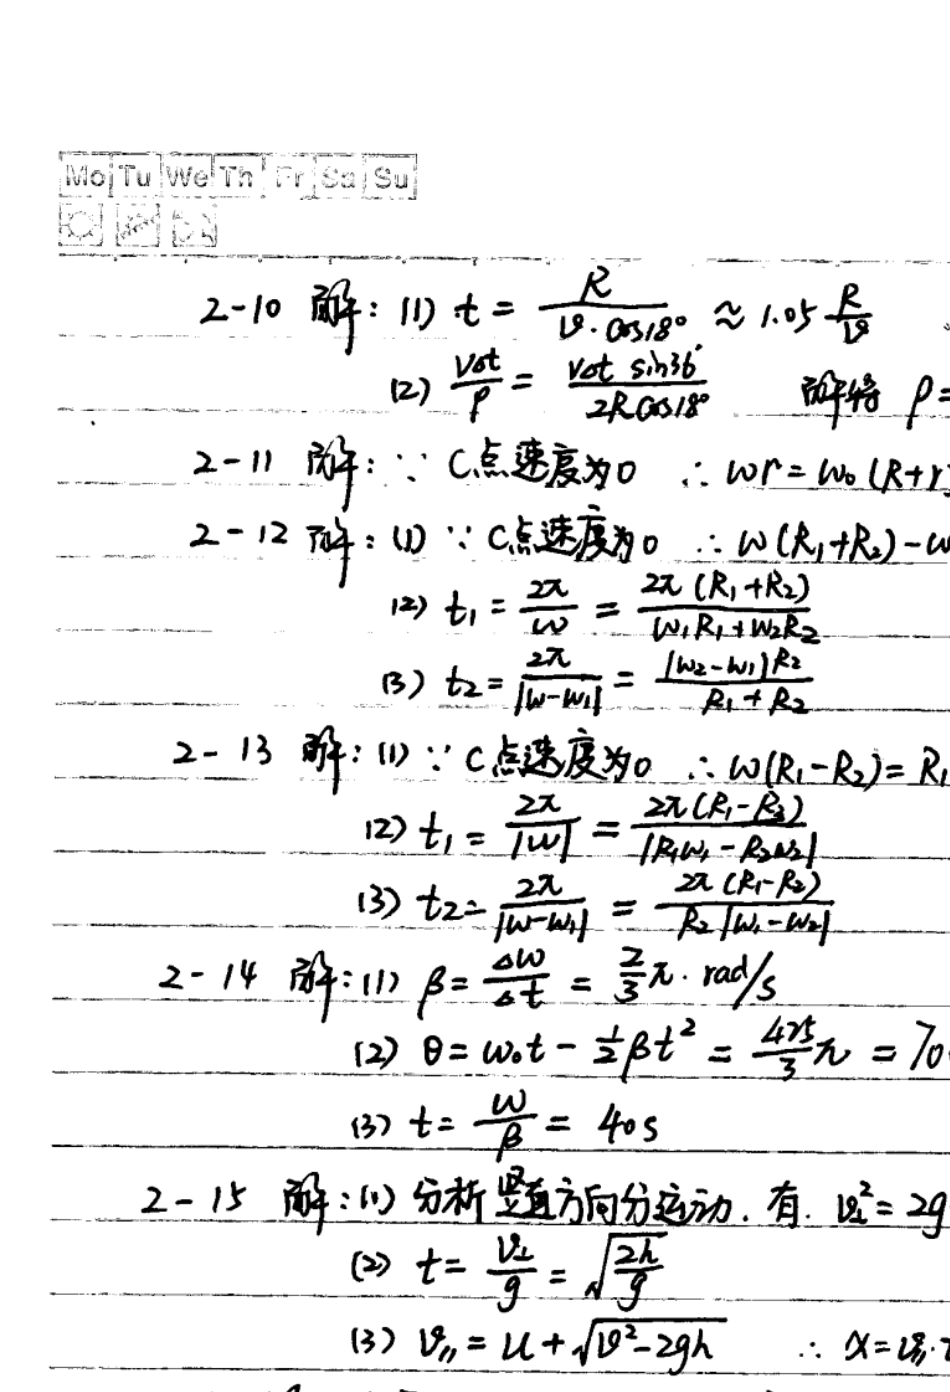 Mo Tu We Th Fr Sa Su
2-10 解: (1) t = R/(v·cos18°) ≈ 1.05 R/v
(2) v₀t/ρ = v₀t sin36°/(2Rcos18°) 解得 ρ=
2-11 解: ∵ C点速度为0 ∴ ωr = ω₀(R+r)
2-12 解: (1) ∵ C点速度为0 ∴ ω(R₁+R₂)-ω
(2) t₁ = 2π/ω = 2π(R₁+R₂)/(ω₁R₁+ω₂R₂)
(3) t₂ = 2π/|ω-ω₁| = |ω₂-ω₁|R₂/(R₁+R₂)
2-13 解: (1) ∵ C点速度为0 ∴ ω(R₁-R₂) = R₁
(2) t₁ = 2π/|ω| = 2π(R₁-R₂)/|R₁ω₁-R₂ω₂|
(3) t₂ = 2π/|ω-ω₁| = 2π(R₁-R₂)/(R₂|ω₁-ω₂|)
2-14 解: (1) β = Δω/Δt = 2/3 π·rad/s
(2) θ = ω₀t - ½βt² = 475/3 π = 70
(3) t = ω/β = 40s
2-15 解: (1) 分析竖直方向分运动. 有. v⊥² = 2g
(2) t = v⊥/g = √(2h/g)
(3) v∥ = u + √(v²-2gh) ∴ x = v∥·